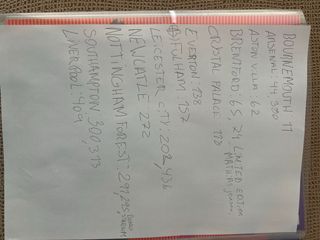 BOURNEMOUTH 11
ARSENAL: 44, 390
ASTON VILLA: 62
BRENTFORD: 65, 74 LIMITED EDITION
CRYSTAL PALACE:
EVERTON: 138
FULHAM: 157
LEICESTER CITY: 202, 456
NEWCATLE 272
NOTTINGHAM FOREST: 291, 295
SOUTHAMPTON 300, 313
LIVERPOOL: 409